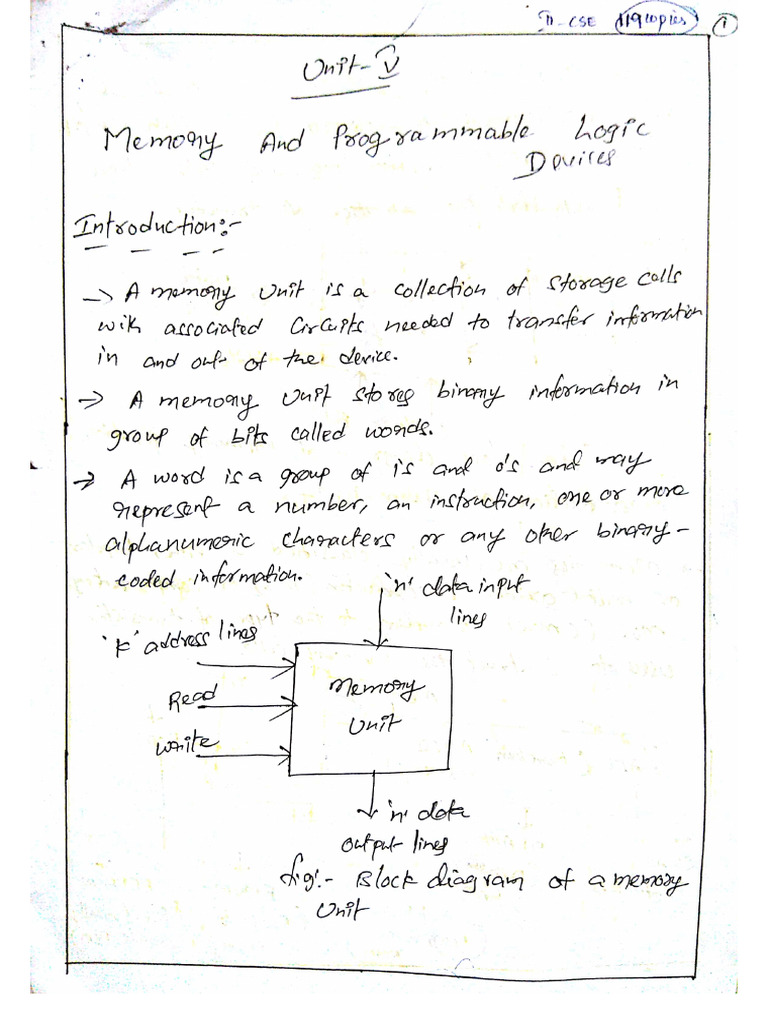 II - CSE 119copies 1
Unit - V
Memory And Programmable Logic
Devices
Introduction:-
-> A memory Unit is a collection of Storage Cells
with associated Circuits needed to transfer information
in and out of the device.
-> A memory Unit stores binary information in
group of bits called words.
-> A word is a group of 1's and 0's and may
represent a number, an instruction, one or more
alphanumeric characters or any other binary-
coded information.
'n' data input
lines
'k' address lines
Read
Write
Memory
Unit
'n' data
output lines
fig:- Block diagram of a memory
Unit